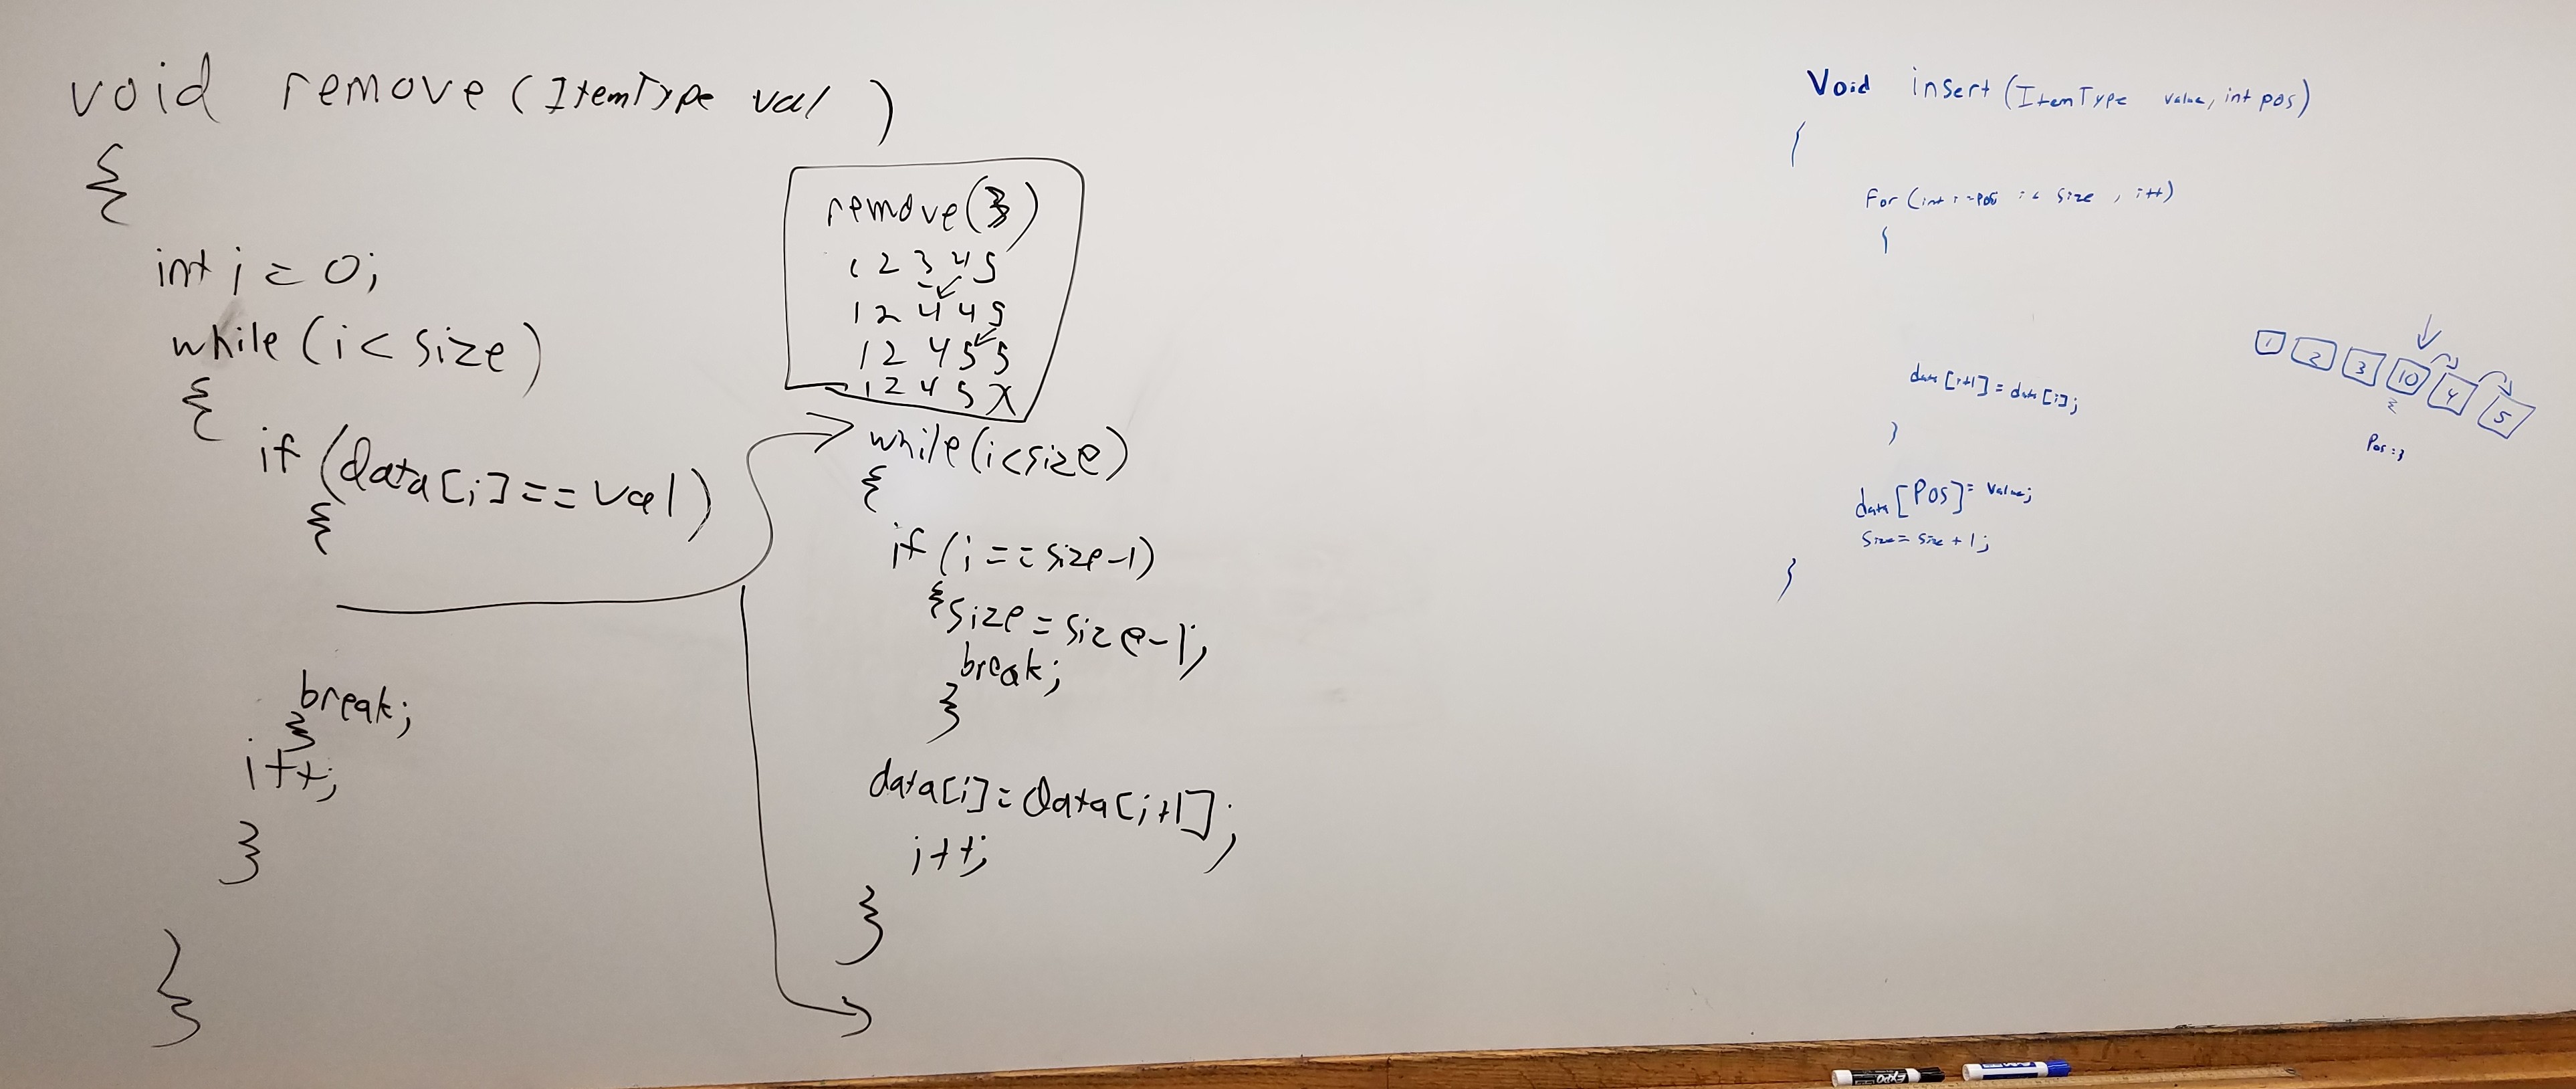 void remove (ItemType val )
{
int i = 0;
while (i < size)
{
if (data[i] == val)
{
break;
}
i++;
}
}
remove(3)
1 2 3 4 5
1 2 4 4 5
1 2 4 5 5
1 2 4 5 X
while (i<size)
{
if (i == size-1)
{size = size-1;
break;
}
data[i] = data[i+1];
i++;
}
Void insert (ItemType value, int pos)
{
For (int i = pos i < size , i++)
{
data [i+1] = data [i];
}
data [Pos] = value;
Size = size + 1;
}
1 2 3 10 4 5
Pos = 3
EXPO